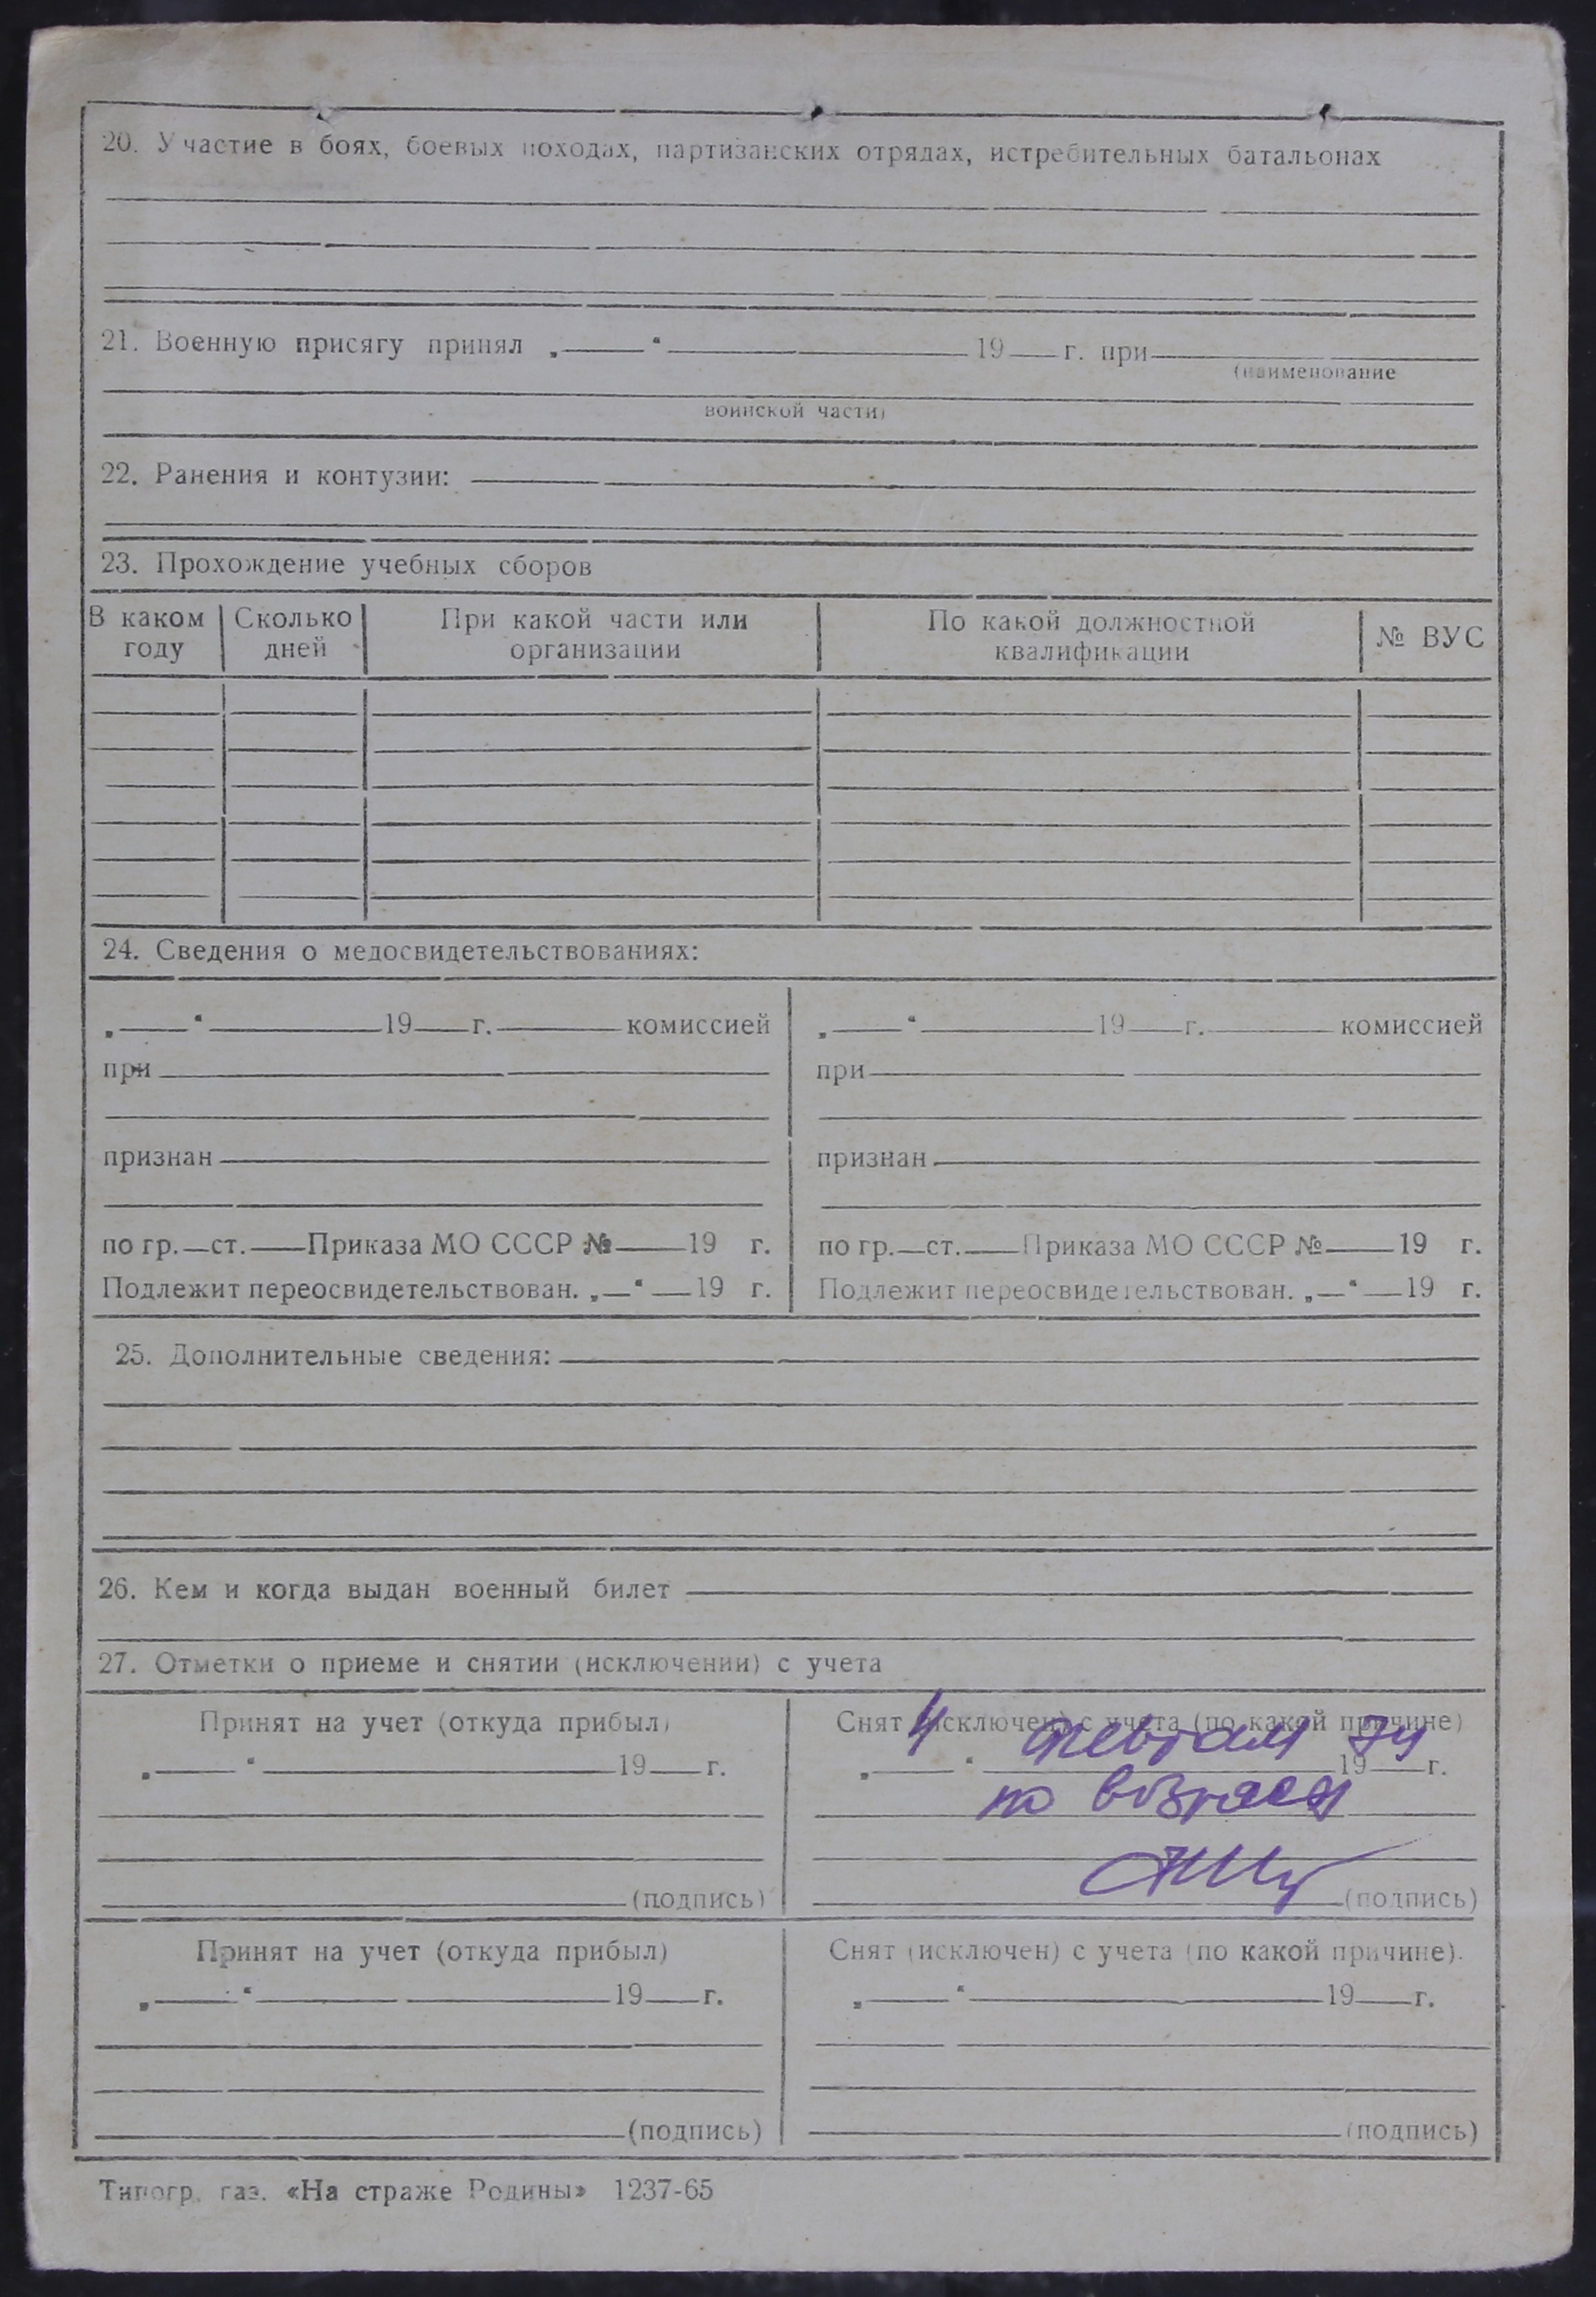 20. Участие в боях, боевых походах, партизанских отрядах, истребительных батальонах
21. Военную присягу принял „ “ 19 г. при
(наименование
воинской части)
22. Ранения и контузии:
23. Прохождение учебных сборов
В каком году Сколько дней При какой части или организации По какой должностной квалификации № ВУС
24. Сведения о медосвидетельствованиях:
„ “ 19 г. комиссией „ “ 19 г. комиссией
при при
признан признан
по гр. ст. Приказа МО СССР № 19 г. по гр. ст. Приказа МО СССР № 19 г.
Подлежит переосвидетельствован. „ “ 19 г. Подлежит переосвидетельствован. „ “ 19 г.
25. Дополнительные сведения:
26. Кем и когда выдан военный билет
27. Отметки о приеме и снятии (исключении) с учета
Принят на учет (откуда прибыл) Снят (исключен) с учета (по какой причине)
„ “ 19 г. „4“ февраля 1974 г.
по возрасту
(подпись) (подпись)
Принят на учет (откуда прибыл) Снят (исключен) с учета (по какой причине).
„ “ 19 г. „ “ 19 г.
(подпись) (подпись)
Типогр. газ. «На страже Родины» 1237-65